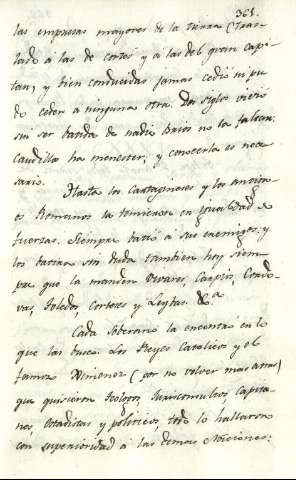 361.
las empresas mayores de la tierra (tras-
lado à las de cortes y à las del gran capi-
tan, y bien conducidas jamas cedió ni pu-
do ceder a ninguna otra. Dos siglos vivió
sin ser batida de nadie. Brios no la faltan:
Caudillo ha menester, y conocerla es nece-
sario.
Hasta los Cartagineses y los antigu-
os Romanos la temieron en igualdad de
fuerzas. Siempre batió a sus enemigos: y
los batira sin duda tambien hoy siem-
pre que la manden Vivares, Carpios, Cordo-
vas, Toledos, Corteses y Leybas. &.a
Cada soberano la encontró en lo
que las buscó. Los Reyes Catolicos y el
famoso Ximenez (por no volver mas atras)
que quisieron Teologos, Jurisconsultos, Capita-
nes, Estadistas y politicos, todo lo hallaron
con superioridad a las demas Naciones: